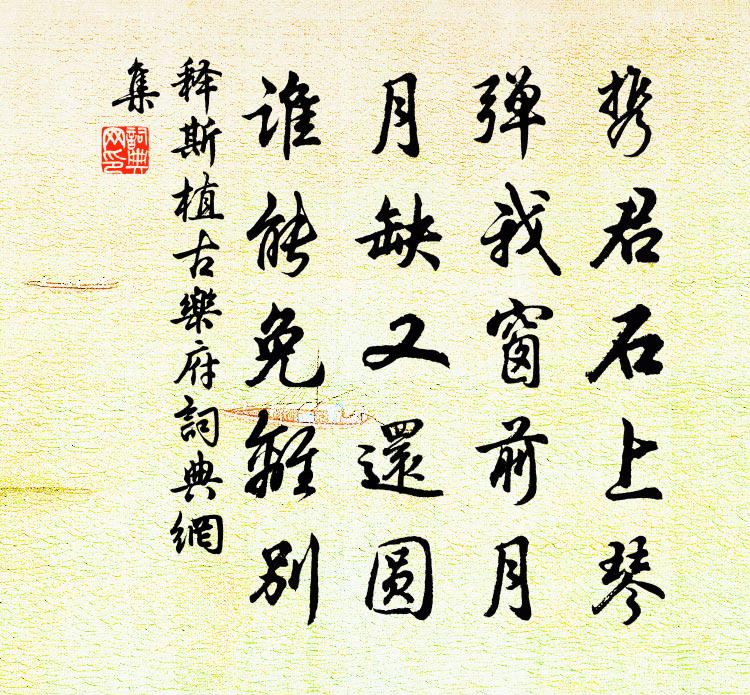 携君石上琴
弹我窗前月
月缺又還圆
谁能免離别
释斯植古樂府詞典網
集
詞典網印